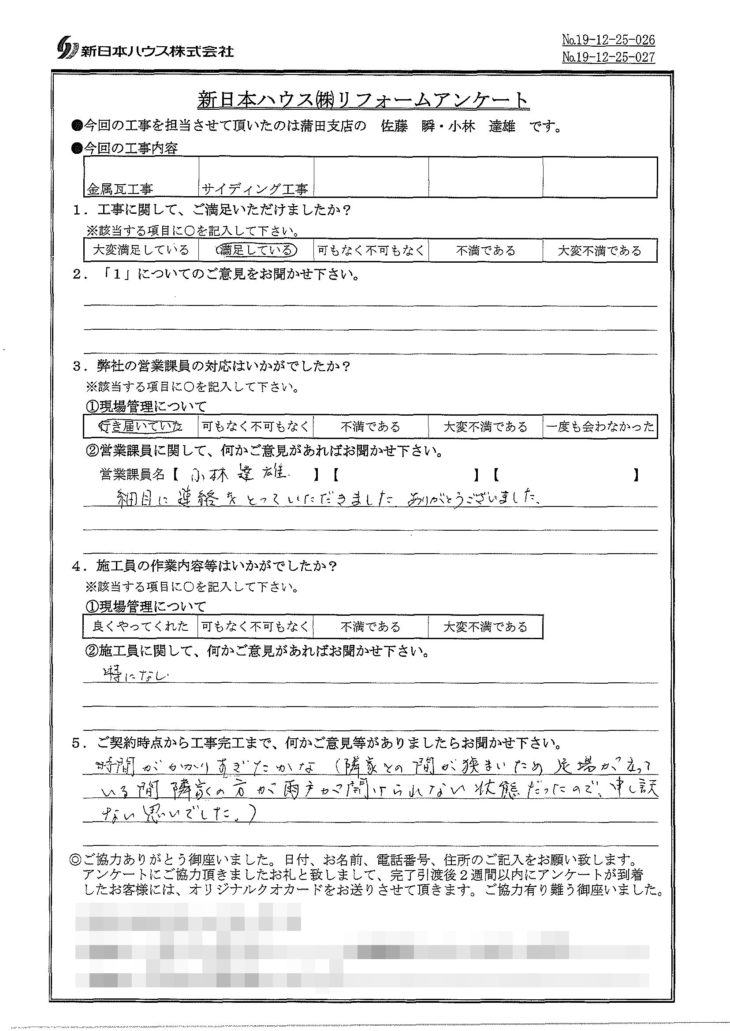 新日本ハウス株式会社
№19-12-25-026
№19-12-25-027
新日本ハウス㈱リフォームアンケート
●今回の工事を担当させて頂いたのは蒲田支店の 佐藤 瞬・小林 達雄 です。
●今回の工事内容
金属瓦工事 サイディング工事
1．工事に関して、ご満足いただけましたか？
※該当する項目に○を記入して下さい。
大変満足している 満足している 可もなく不可もなく 不満である 大変不満である
2．「1」についてのご意見をお聞かせ下さい。
3．弊社の営業課員の対応はいかがでしたか？
※該当する項目に○を記入して下さい。
①現場管理について
行き届いていた 可もなく不可もなく 不満である 大変不満である 一度も会わなかった
②営業課員に関して、何かご意見があればお聞かせ下さい。
営業課員名【 小林 達雄 】【 】【 】
細目に連絡をとっていただきました ありがとうございました。
4．施工員の作業内容等はいかがでしたか？
※該当する項目に○を記入して下さい。
①現場管理について
良くやってくれた 可もなく不可もなく 不満である 大変不満である
②施工員に関して、何かご意見があればお聞かせ下さい。
特になし
5．ご契約時点から工事完工まで、何かご意見等がありましたらお聞かせ下さい。
時間がかかりすぎたかな（隣家との間が狭いため 足場が立って
いる間 隣家の方が雨戸が開けられない状態だったので、申し訳
ない思いでした。）
◎ご協力ありがとう御座いました。日付、お名前、電話番号、住所のご記入をお願い致します。
アンケートにご協力頂きましたお礼と致しまして、完了引渡後２週間以内にアンケートが到着
したお客様には、オリジナルクオカードをお送りさせて頂きます。ご協力有り難う御座いました。